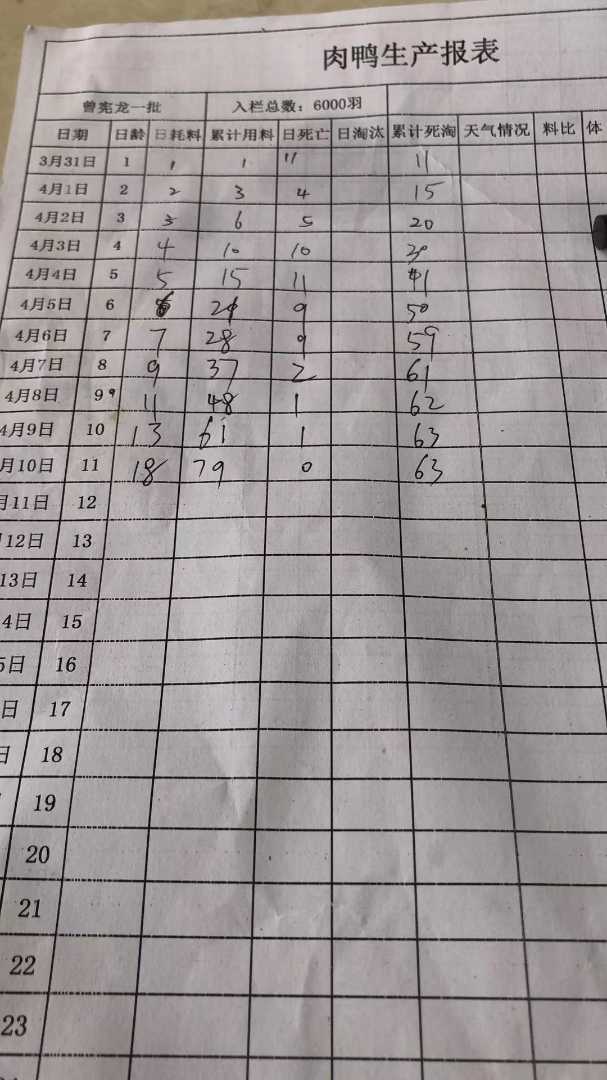 肉鸭生产报表
曾宪龙一批 入栏总数：6000羽
日期 日龄 日耗料 累计用料 日死亡 日淘汰 累计死淘 天气情况 料比 体
3月31日 1 1 1 11 11
4月1日 2 2 3 4 15
4月2日 3 3 6 5 20
4月3日 4 4 10 10 30
4月4日 5 5 15 11 41
4月5日 6 6 21 9 50
4月6日 7 7 28 9 59
4月7日 8 9 37 2 61
4月8日 9 11 48 1 62
4月9日 10 13 61 1 63
月10日 11 18 79 0 63
月11日 12
12日 13
13日 14
4日 15
5日 16
日 17
日 18
19
20
21
22
23